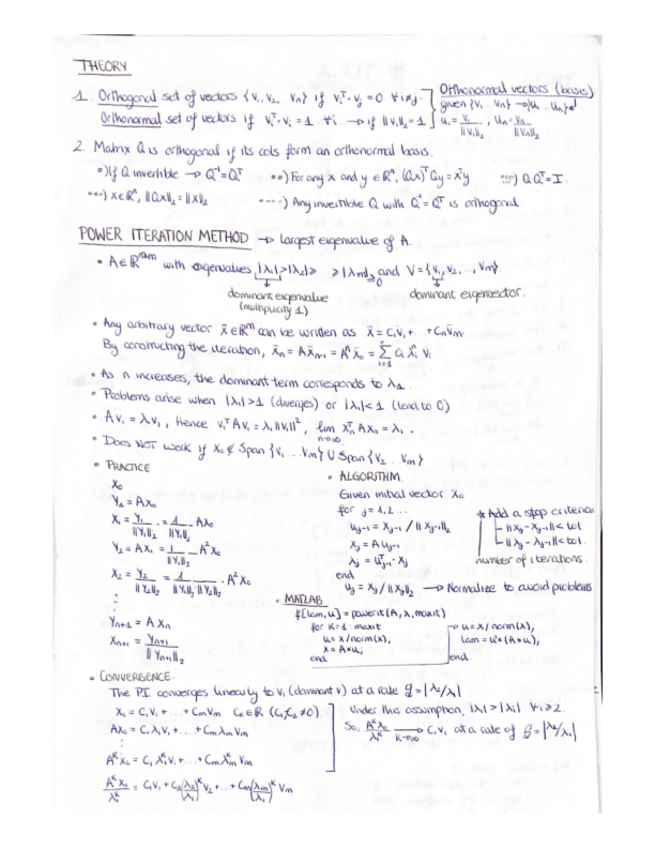 THEORY
1. Orthogonal set of vectors {v₁, v₂, Vn} if vᵢᵀ·vⱼ = 0 ∀i≠j.
Orthonormal set of vectors if vᵢᵀ·vᵢ = 1 ∀i. → if ||vᵢ||₂ = 1
Orthonormal vectors (basis)
given {v₁ .. Vn} → {u₁ .. Un}
u₁ = v₁/||v₁||₂, Un = vn/||Vn||₂
2. Matrix Q is orthogonal if its cols form an orthonormal basis.
•) If Q invertible → Q⁻¹=Qᵀ ••) For any x and y ∈ ℝⁿ, (Qx)ᵀQy = xᵀy •••) QQᵀ=I.
•••) x∈ℝⁿ, ||Qx||₂ = ||x||₂ ••••) Any invertible Q with Q⁻¹=Qᵀ is orthogonal
POWER ITERATION METHOD → largest eigenvalue of A.
• A∈ℝᵐˣᵐ with eigenvalues |λ₁|>|λ₂|≥ ≥|λm|≥0 and V={v₁, v₂, .., Vm}.
dominant eigenvalue dominant eigenvector.
(multiplicity 1)
• Any arbitrary vector x̄∈ℝᵐ can be written as x̄ = C₁v̄₁+ .. +Cmv̄m.
By constructing the iteration, x̄n = Ax̄n-1 = Aⁿx̄₀ = Σ i=1 cᵢ λᵢⁿ vᵢ
• As n increases, the dominant term corresponds to λ₁.
• Problems arise when |λ₁|>1 (diverges) or |λ₁|<1 (tend to 0)
• Av₁ = λ₁v₁, Hence v₁ᵀAv₁ = λ₁||v₁||², lim n→∞ xnᵀAxn = λ₁.
• Does NOT work if x₀ ∉ Span{v₁ .. Vm} U Span{V₂ .. Vm}
• PRACTICE
X₀
Y₁ = AX₀
X₁ = Y₁/||Y₁||₂ = 1/||Y₁||₂ · AX₀
Y₂ = AX₁ = 1/||Y₁||₂ A²X₀
X₂ = Y₂/||Y₂||₂ = 1/||Y₁||₂·||Y₂||₂ · A²X₀
⋮
Yn+1 = AXn
Xn+1 = Yn+1/||Yn+1||₂
• ALGORITHM.
Given initial vector X₀
for j=1,2...
uj-1 = xj-1 / ||xj-1||₂
xj = Auj-1
λj = uᵀj-1 · xj
end
uj = xj/||xj||₂ → Normalize to avoid problems
* Add a stop criterion
||xj - xj-1|| < tol
||λj - λj-1|| < tol.
number of iterations.
• MATLAB
f[lam,u] = powerit(A,x,maxit)
for k=1:maxit
u=x/norm(x),
x=A*u;
end
u=x/norm(x),
lam=u'*(A*u),
end
• CONVERGENCE.
The PI converges linearly to v₁ (dominant v) at a rate g=|λ₂/λ₁|
X₀ = C₁V₁ + ... + CmVm Cn∈ℝ (C₁,C₂≠0)
AX₀ = C₁λ₁V₁ + ... + CmλmVm
⋮
AᵏX₀ = C₁λ₁ᵏV₁ + ... + CmλmᵏVm
AᵏX₀/λ₁ᵏ = C₁V₁ + C₂(λ₂/λ₁)ᵏV₂ + .. + Cm(λm/λ₁)ᵏVm
Under this assumption, |λ₁|>|λᵢ| ∀i≥2.
So, AᵏX₀/λ₁ᵏ → k→∞ C₁V₁ at a rate of g=|λ₂/λ₁|